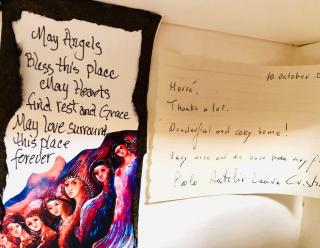 May Angels
Bless this place
May Hearts
find rest and Grace
May love surround
this place
forever
10 October
Hervé,
Thanks a lot.
Wonderful and cozy home!
Very nice and we have been very
Paolo Natalie Laura